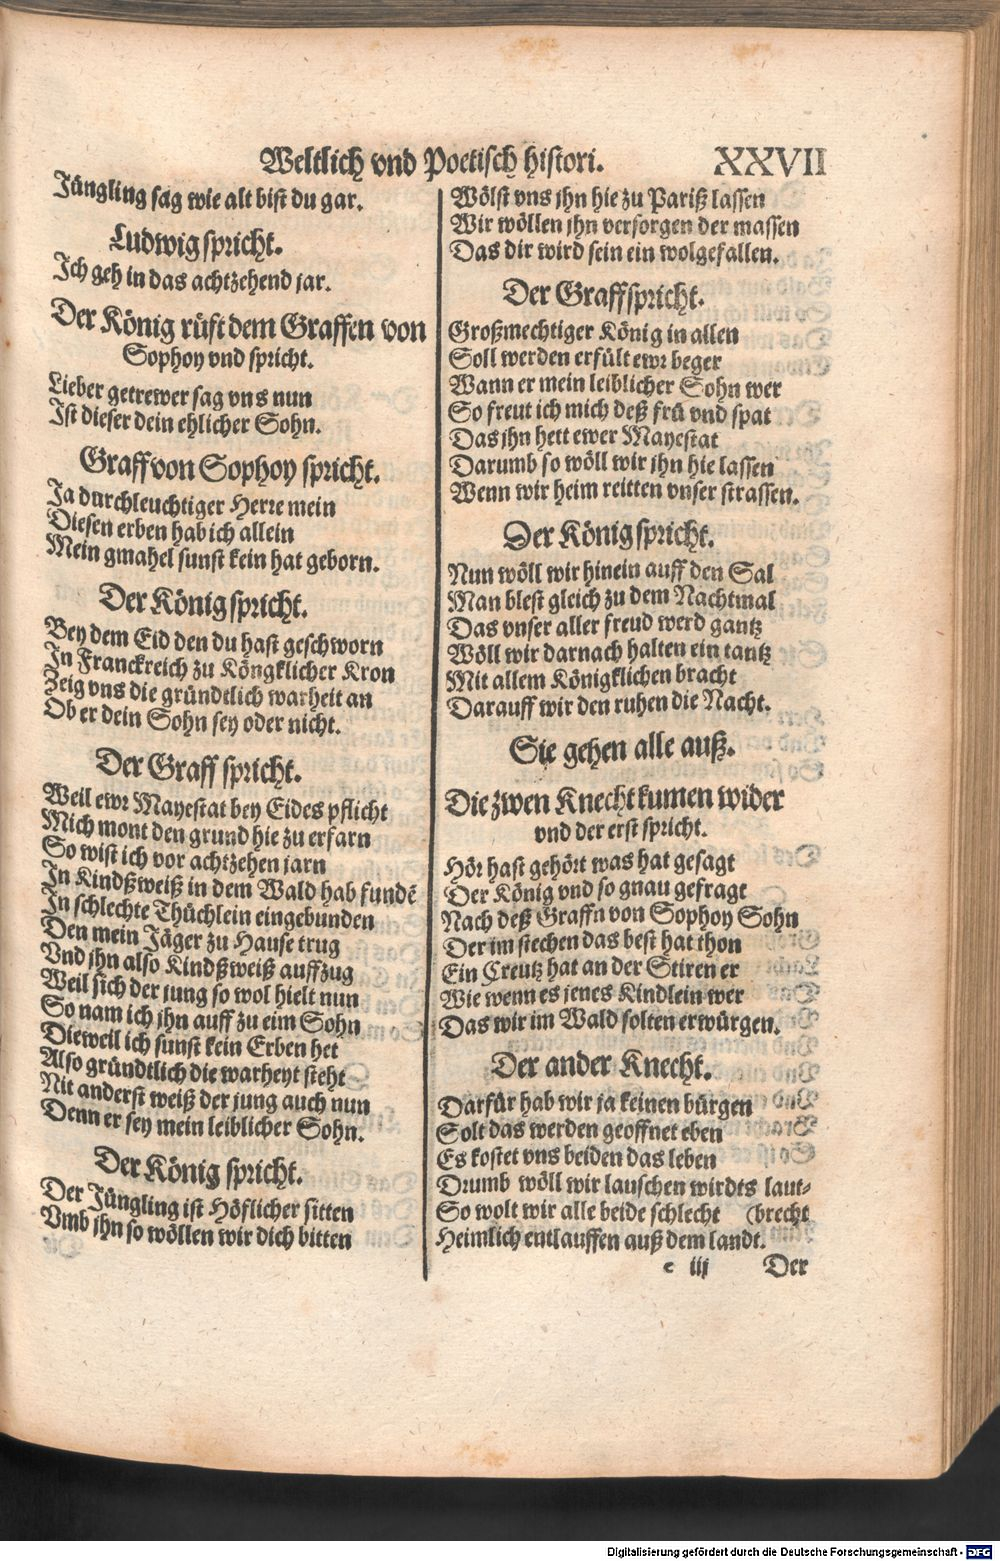 Weltlich vnd Poetisch histori. XXVII
Jüngling sag wie alt bist du gar.
Ludwig spricht.
Ich geh in das achtzehend jar.
Der König rüft dem Graffen von
Sophoy vnd spricht.
Lieber getrewer sag vns nun
Ist dieser dein ehlicher Sohn.
Graff von Sophoy spricht.
Ja durchleuchtiger Herre mein
Diesen erben hab ich allein
Mein gmahel sunst kein hat geborn.
Der König spricht.
Bey dem Eid den du hast geschworn
In Franckreich zu Köngklicher Kron
Zeig vns die gründtlich warheit an
Ob er dein Sohn sey oder nicht.
Der Graff spricht.
Weil ewr Mayestat bey Eides pflicht
Mich mont den grund hie zu erfarn
So wist ich vor achtzehen jarn
In Kindßweiß in dem Wald hab fundē
In schlechte Thüchlein eingebunden
Den mein Jäger zu Hause trug
Vnd jhn also Kindßweiß auffzug
Weil sich der jung so wol hielt nun
So nam ich jhn auff zu eim Sohn
Dieweil ich sunst kein Erben het
Also gründtlich die warheyt steht
Nit anderst weiß der jung auch nun
Denn er sey mein leiblicher Sohn.
Der König spricht.
Der Jüngling ist Höflicher sitten
Vmb jhn so wöllen wir dich bitten
Wölst vns jhn hie zu Pariß lassen
Wir wöllen jhn versorgen der massen
Das dir wird sein ein wolgefallen.
Der Graff spricht.
Großmechtiger König in allen
Soll werden erfült ewr beger
Wann er mein leiblicher Sohn wer
So freut ich mich deß frü vnd spat
Das jhn hett ewer Mayestat
Darumb so wöll wir jhn hie lassen
Wenn wir heim reitten vnser strassen.
Der König spricht.
Nun wöll wir hinein auff den Sal
Man blest gleich zu dem Nachtmal
Das vnser aller freud werd gantz
Wöll wir darnach halten ein tantz
Mit allem Königklichen bracht
Darauff wir den ruhen die Nacht.
Sie gehen alle auß.
Die zwen Knecht kumen wider
vnd der erst spricht.
Hör hast gehört was hat gesagt
Der König vnd so gnau gefragt
Nach deß Graffn von Sophoy Sohn
Der im stechen das best hat thon
Ein Creutz hat an der Stiren er
Wie wenn es jenes Kindlein wer
Das wir im Wald solten erwürgen.
Der ander Knecht.
Darfür hab wir ja keinen bürgen
Solt das werden geoffnet eben
Es kostet vns beiden das leben
Drumb wöll wir lauschen wirdts laut-
So wolt wir alle beide schlecht (brecht
Heimlich entlauffen auß dem landt.
e iij Der
Digitalisierung gefördert durch die Deutsche Forschungsgemeinschaft - DFG